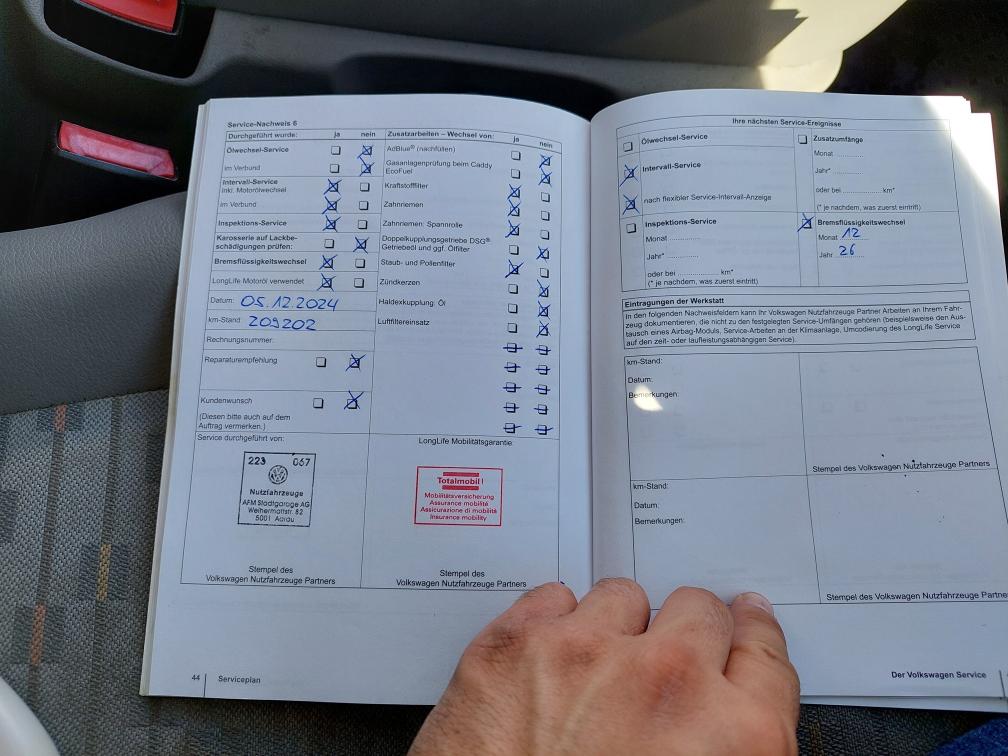 Service-Nachweis 6
Durchgeführt wurde: ja nein
Ölwechsel-Service
im Verbund
Intervall-Service
inkl. Motorölwechsel
im Verbund
Inspektions-Service
Karosserie auf Lackbe-
schädigungen prüfen:
Bremsflüssigkeitswechsel
LongLife Motoröl verwendet
Datum: 05.12.2024
km-Stand: 209202
Rechnungsnummer:
Reparaturempfehlung
Kundenwunsch
(Diesen bitte auch auf dem
Auftrag vermerken.)
Zusatzarbeiten – Wechsel von: ja nein
AdBlue® (nachfüllen)
Gasanlagenprüfung beim Caddy
EcoFuel
Kraftstofffilter
Zahnriemen
Zahnriemen: Spannrolle
Doppelkupplungsgetriebe DSG®:
Getriebeöl und ggf. Ölfilter
Staub- und Pollenfilter
Zündkerzen
Haldexkupplung: Öl
Luftfiltereinsatz
Service durchgeführt von:
223 067
Nutzfahrzeuge
AFM Stadtgarage AG
Weihermattstr. 82
5001 Aarau
Stempel des
Volkswagen Nutzfahrzeuge Partners
LongLife Mobilitätsgarantie:
Totalmobil!
Mobilitätsversicherung
Assurance mobilité
Assicurazione di mobilità
Insurance mobility
Stempel des
Volkswagen Nutzfahrzeuge Partners
44 Serviceplan
Ihre nächsten Service-Ereignisse
Ölwechsel-Service
Intervall-Service
nach flexibler Service-Intervall-Anzeige
Inspektions-Service
Monat
Jahr*
oder bei km*
(* je nachdem, was zuerst eintritt)
Zusatzumfänge
Monat
Jahr*
oder bei km*
(* je nachdem, was zuerst eintritt)
Bremsflüssigkeitswechsel
Monat 12
Jahr 26
Eintragungen der Werkstatt
In den folgenden Nachweisfeldern kann Ihr Volkswagen Nutzfahrzeuge Partner Arbeiten an Ihrem Fahr-
zeug dokumentieren, die nicht zu den festgelegten Service-Umfängen gehören (beispielsweise den Aus-
tausch eines Airbag-Moduls, Service-Arbeiten an der Klimaanlage, Umcodierung des LongLife Service
auf den zeit- oder laufleistungsabhängigen Service).
km-Stand:
Datum:
Bemerkungen:
Stempel des Volkswagen Nutzfahrzeuge Partners
km-Stand:
Datum:
Bemerkungen:
Stempel des Volkswagen Nutzfahrzeuge Partne
Der Volkswagen Service